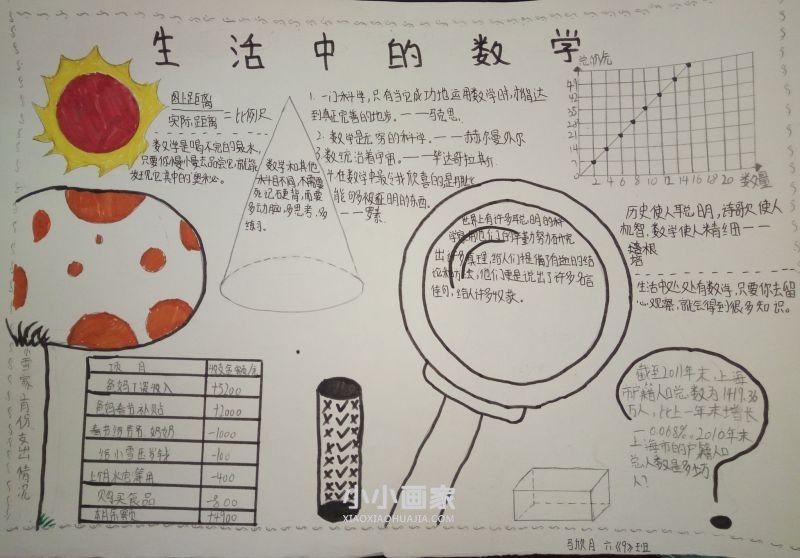 生活中的数学
图上距离
实际距离
=比例尺
数学是喝不完的泉水，
只要你慢慢去品尝它，就能
发现它其中的奥秘。
数学和其他
科目不同，不需要
死记硬背，而要
多动脑，多思考，多
练习。
1. 一门科学，只有当它成功地运用数学时，才能达
到真正完善的地步。——马克思.
2. 数学是无穷的科学。——赫尔曼外尔
3. 数统治着宇宙。——毕达哥拉斯
4. 在数学中最令我欣喜的是那些
能够被证明的东西。
——罗素
总价/元
49
42
35
28
21
14
7
0
2 4 6 8 10 12 14 16 18 20 数量
历史使人聪明，诗歌使人
机智，数学使人精细——
培根
生活中处处有数学，只要你去留
心观察，就会得到很多知识。
世界上有许多聪明的科
学家用他们的辛勤努力研究
出许多真理，给人们提供了有趣的结
论和方法，他们更是说出了许多名言
佳句，给人许多收获。
小雪家一月份支出情况
项目 收支金额/元
爸妈工资收入 +5200
爸妈春节补贴 +2000
春节孝敬爷爷奶奶 -1000
给小雪压岁钱 -100
上月水电费用 -400
购买食品 -800
本月余额 +4900
截至2011年末，上海
市户籍人口总数为1419.36
万人，比上一年末增长
0.068%。2010年末
上海市的户籍人口
总人数是多少万
人？
小小画家
XIAOXIAOHUAJIA.COM
马欣月 六《9》班